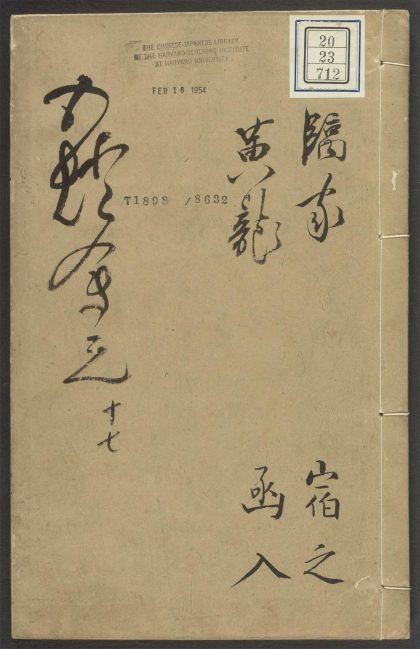 THE CHINESE-JAPANESE LIBRARY
OF THE HARVARD-YENCHING INSTITUTE
AT HARVARD UNIVERSITY
FEB 16 1954
20
23
712
T1898 /8632
臨家
黄龍
五燈會元 十七
宿之
函入